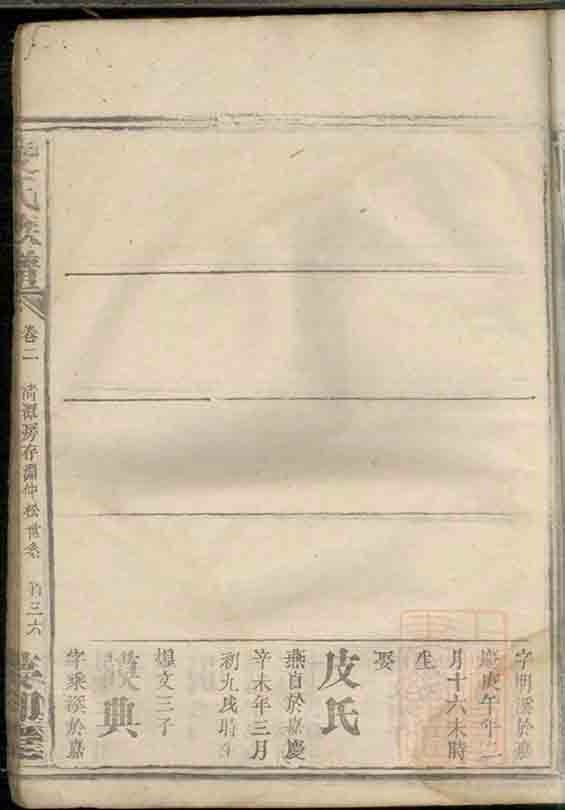 字明溪於嘉
慶庚午年二
月十六未時
生
娶
皮氏
燕自於嘉慶
辛未年三月
初九戌時生
煌文三子
典
字乘溪於嘉
氏族譜
卷二
清潭房存淵仲松世系
三六